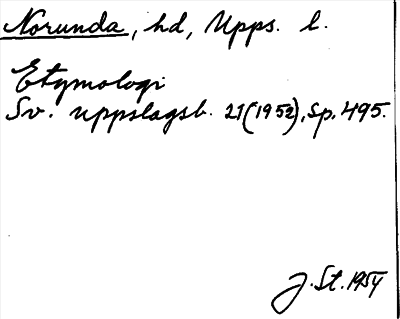 Norunda, hd, Upps. l.
Etymologi
Sv. uppslagsb. 21(1952), sp. 495.
J. St. 1954